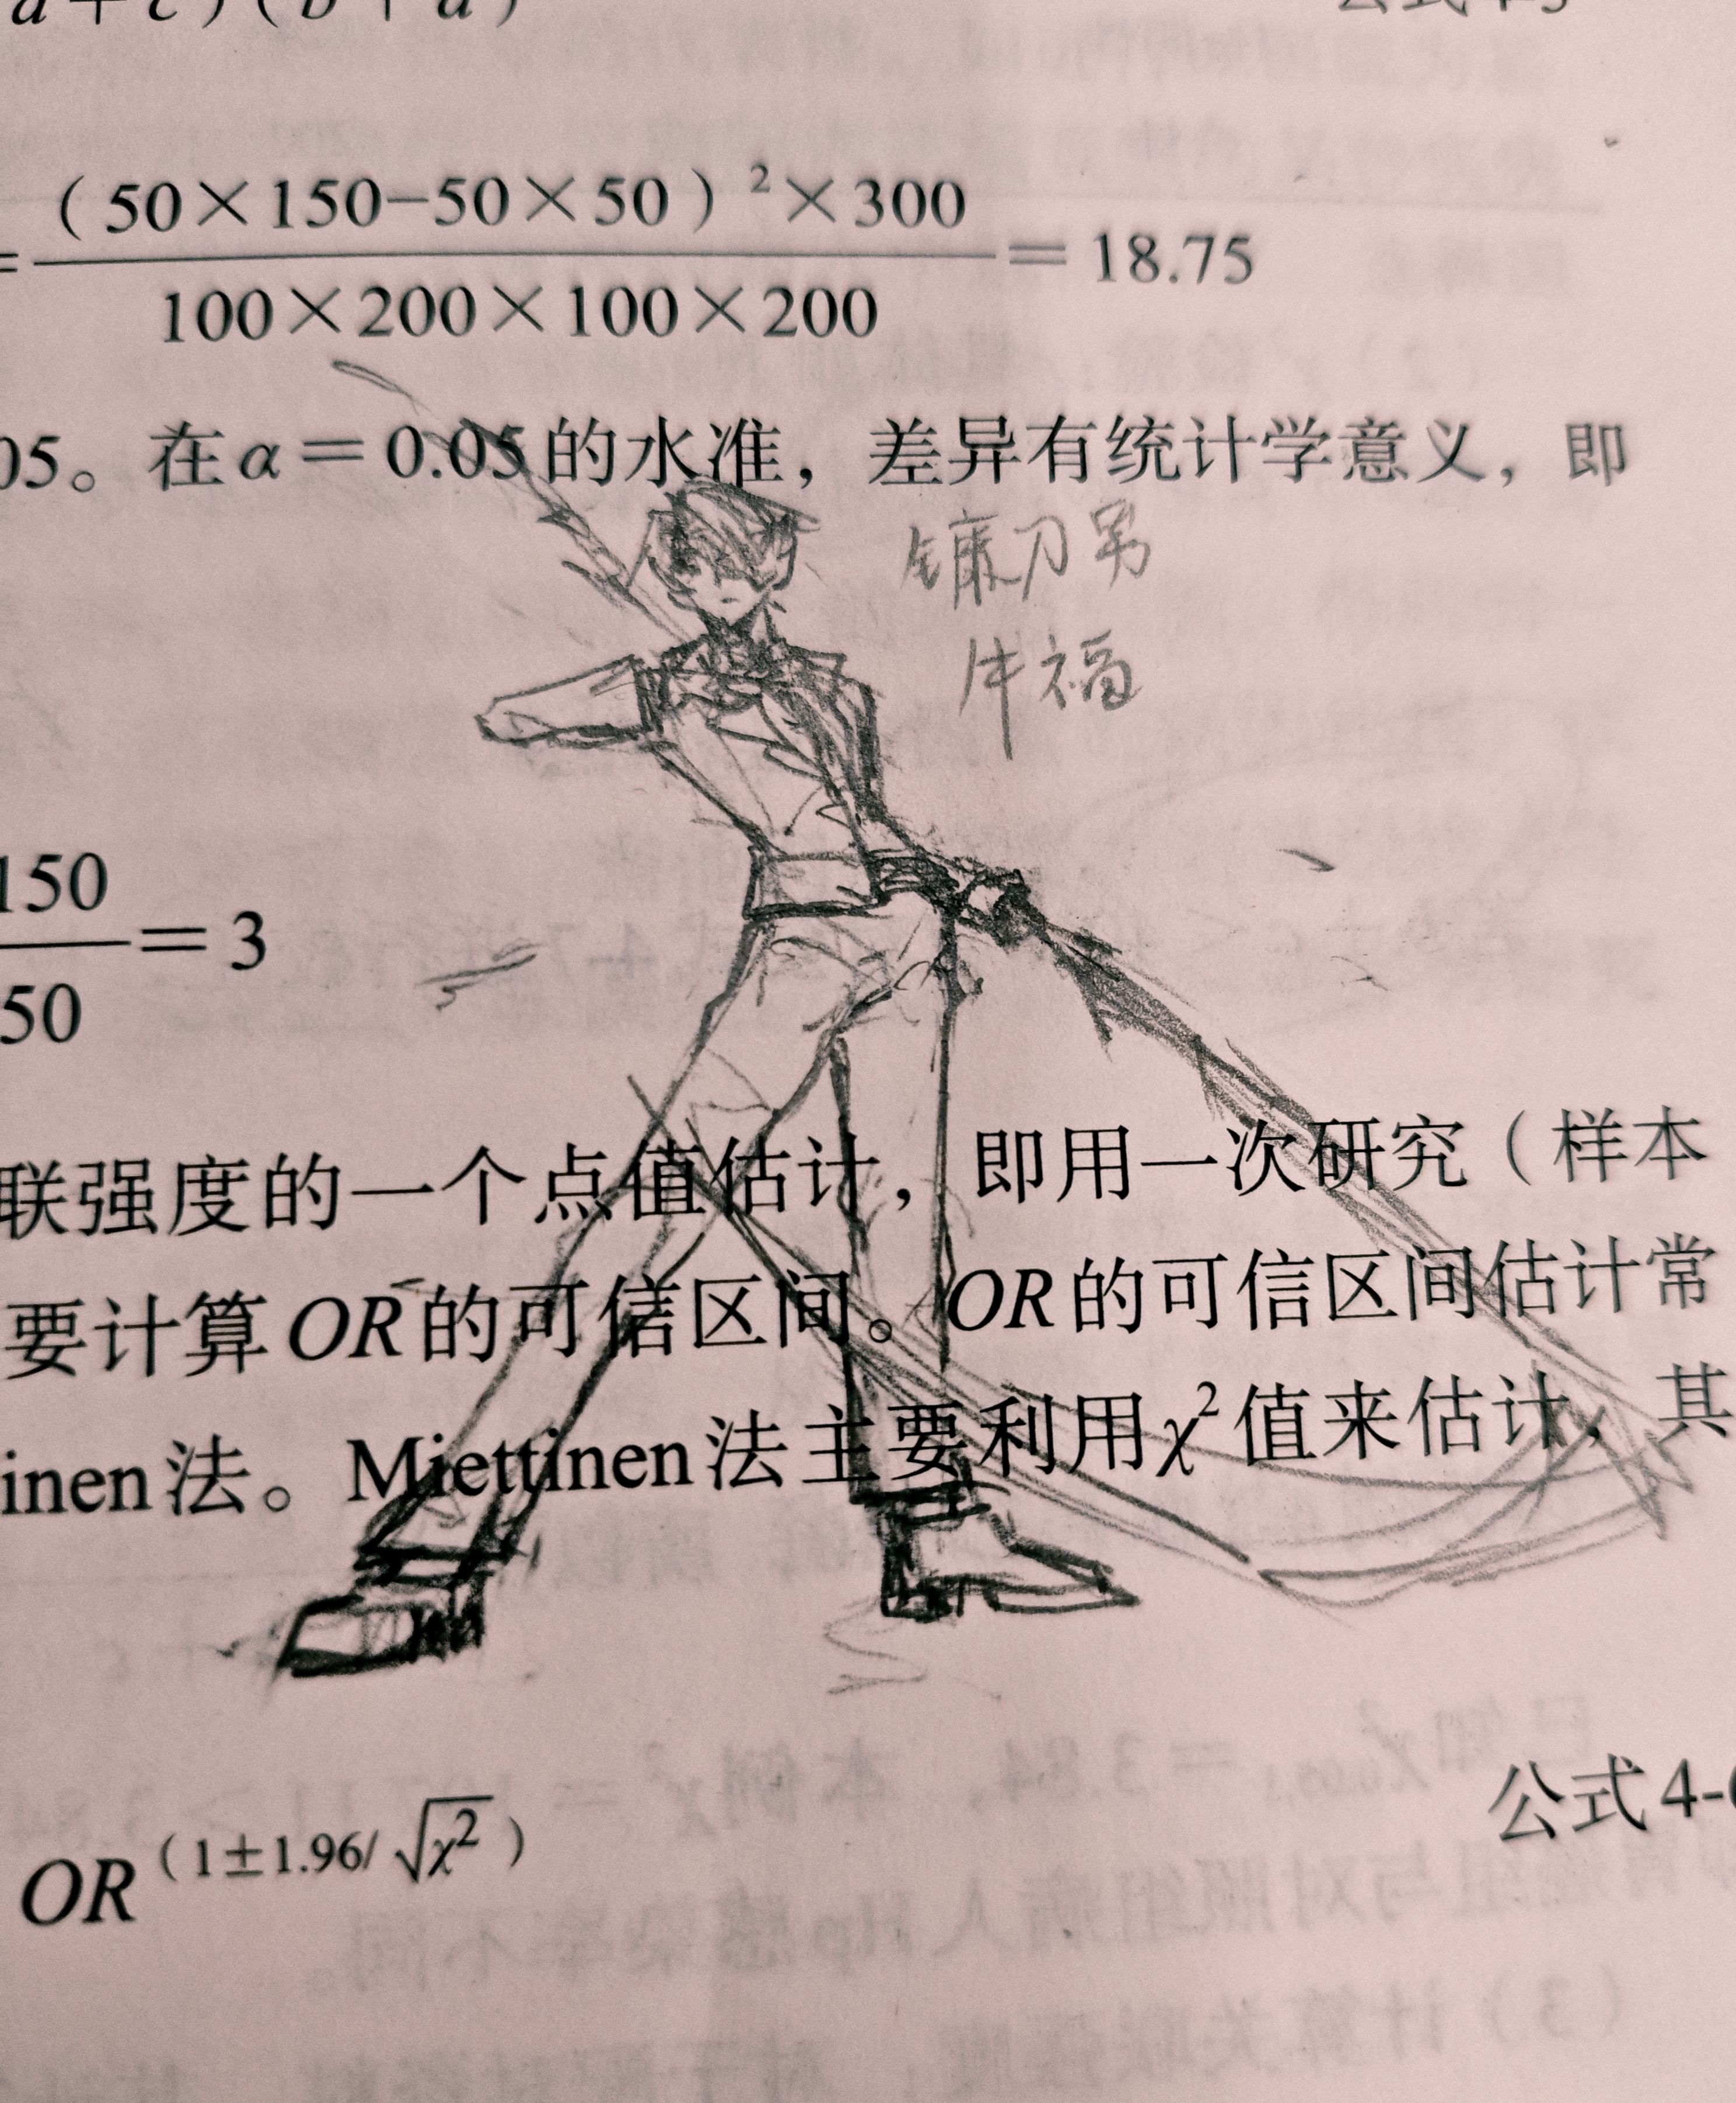 a + c ) ( b + d )
= ( 50×150−50×50 ) ²×300 / 100×200×100×200 = 18.75
05。在α＝0.05的水准，差异有统计学意义，即
镰刀男
牛福
150 / 50 = 3
联强度的一个点值估计，即用一次研究（样本
要计算OR的可信区间。OR的可信区间估计常
inen法。Miettinen法主要利用χ²值来估计，其
OR（1±1.96/√χ²）
公式4-